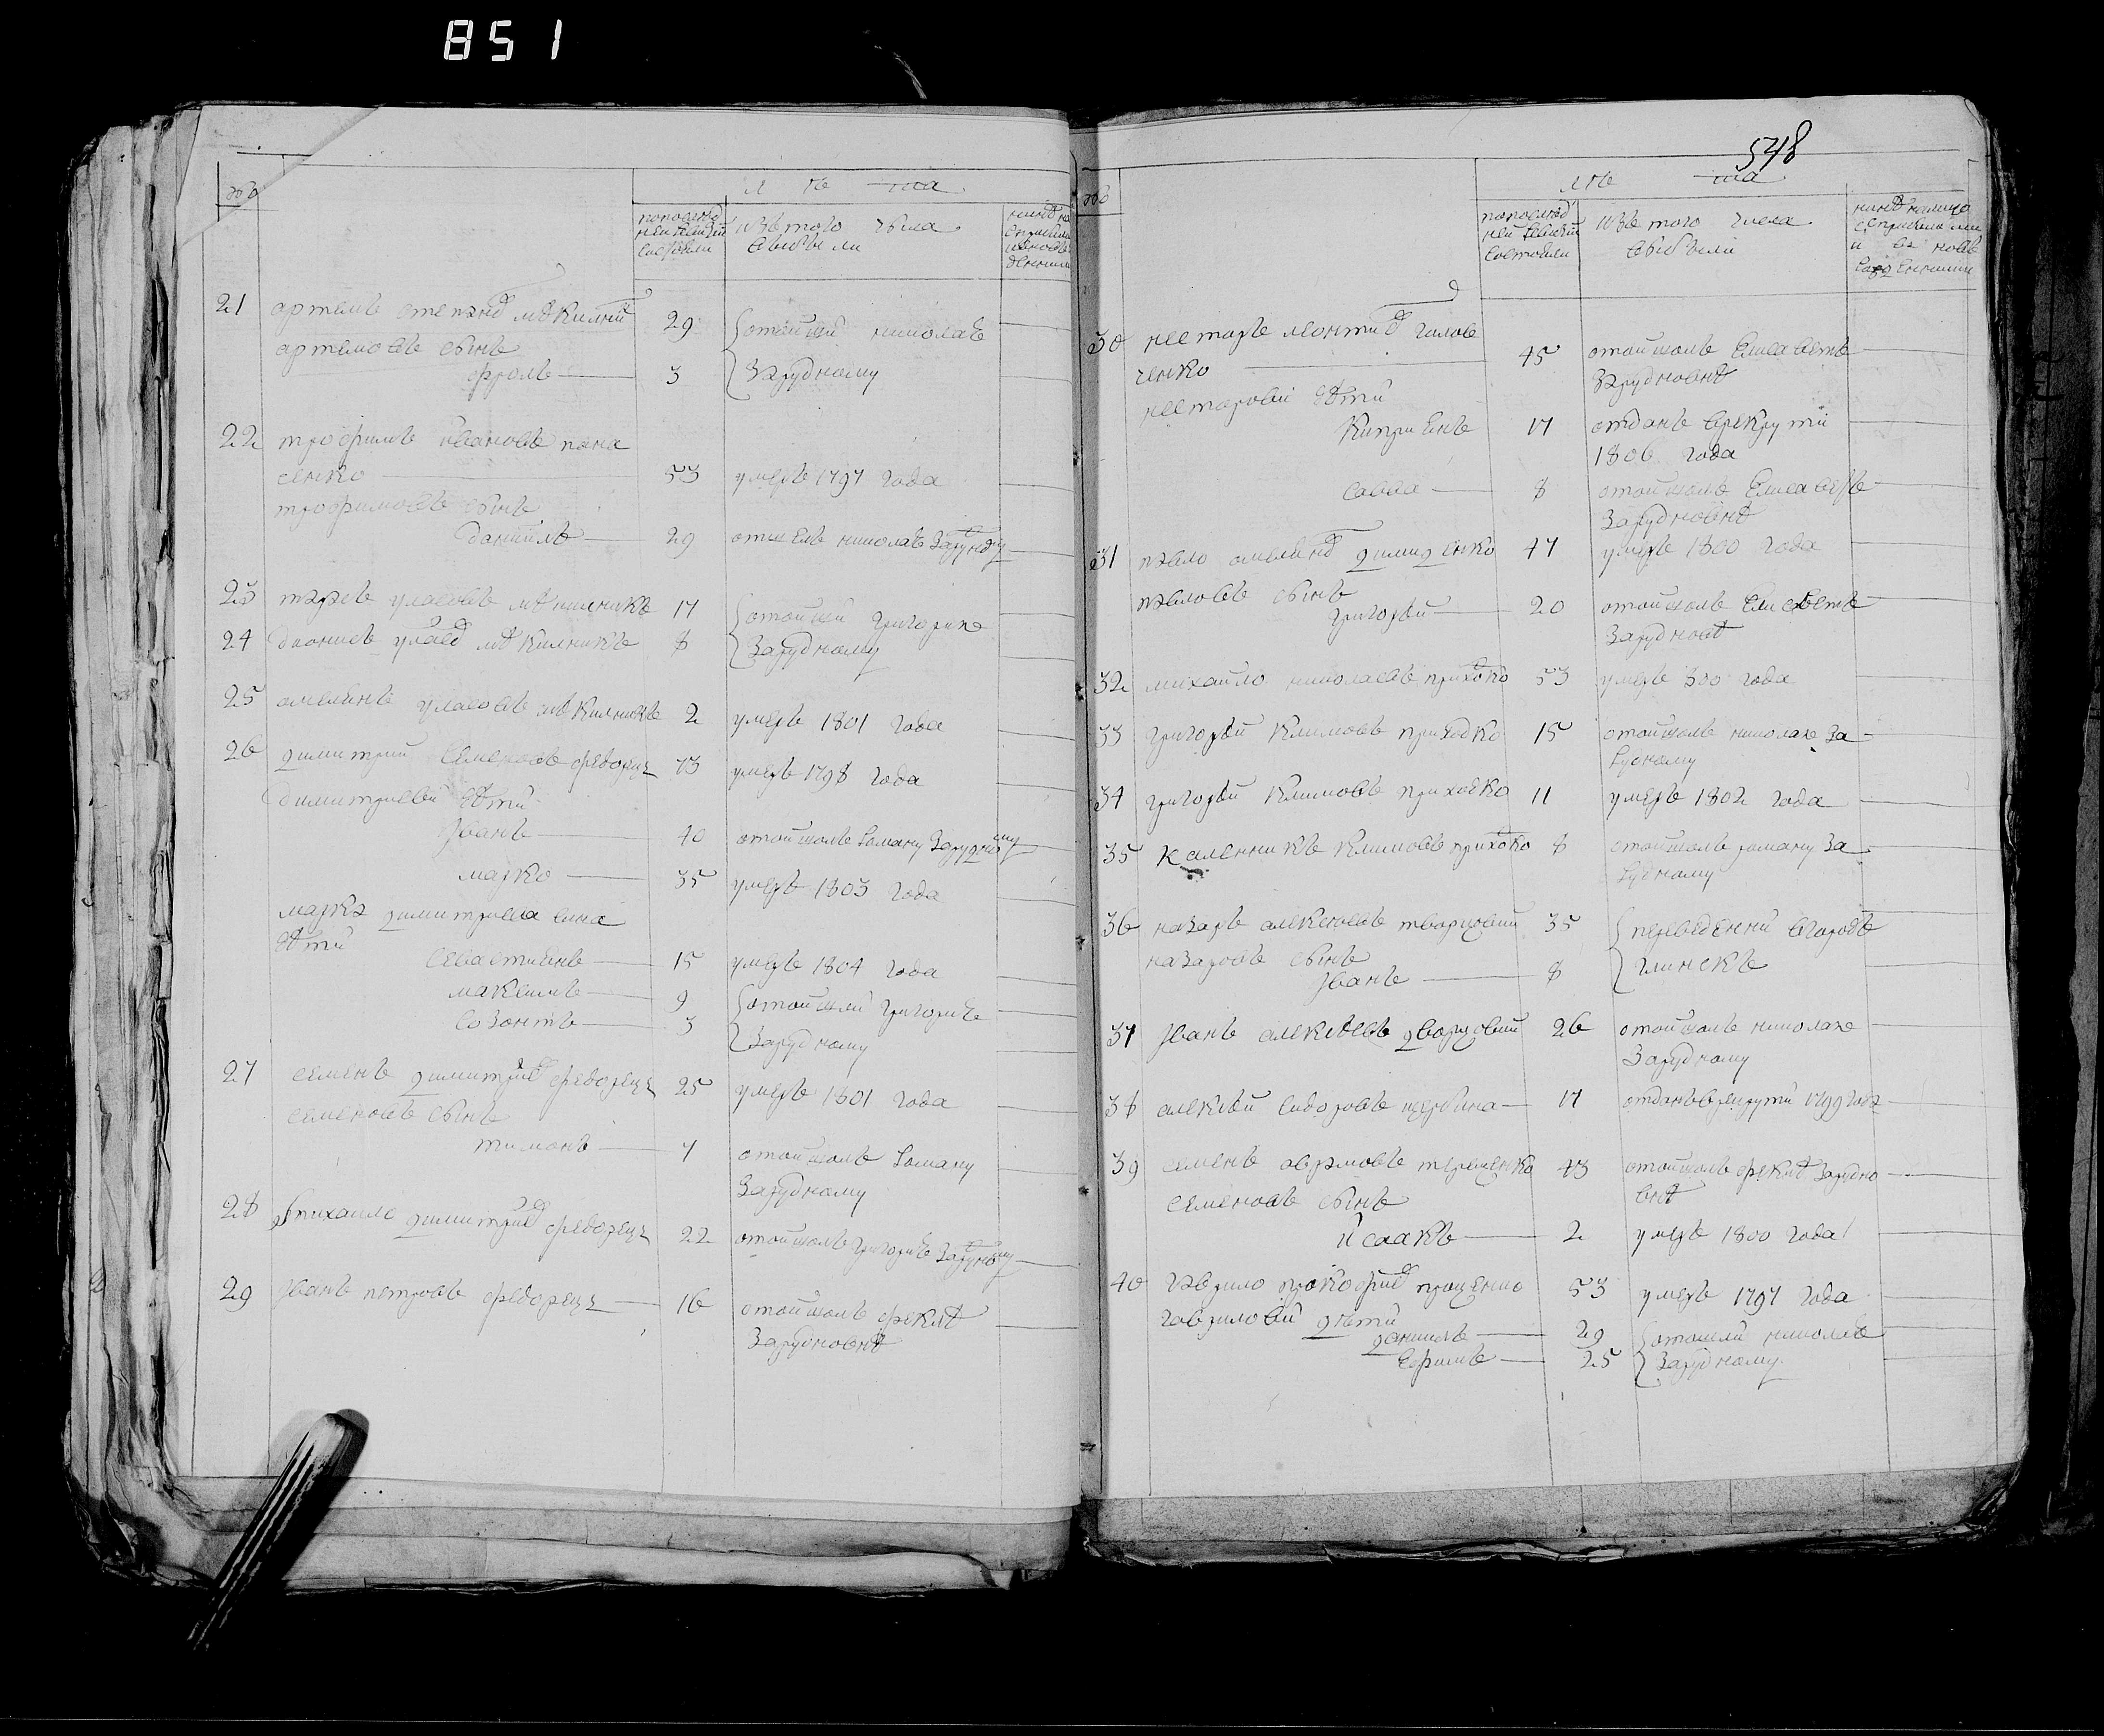 851
№
лѣта
по послѣд
ней ревизіи
состояли
изъ того числа
выбыли
21 артемъ степанов мѣкилний 29 отойшли николаю
артемовъ сынъ
фролъ 3 Зарудному
22 трофимъ ивановъ пана
сенко 53 умеръ 1797 года
трофимовъ сынъ
даниилъ 29 отшелъ николаю Зарудному
23 тарасъ уласовъ мѣкилникъ 17 отойшли григорию
24 дионисъ уласов мѣкилникъ 8 Зарудному
25 омелянъ уласовъ мѣкилникъ 2 умеръ 1801 года
26 димитрий семеновъ федорецъ 73 умеръ 1798 года
димитриевы дѣти
Иванъ 40 отойшолъ роману Зарудному
марко 35 умеръ 1803 года
марка димитриева сина
дѣти
севастиянъ 15 умеръ 1804 года
максимъ 9 отойшли григорию
созонтъ 3 Зарудному
27 семенъ димитриев федорецъ 25 умеръ 1801 года
семеновъ сынъ
тимонъ 7 отойшолъ роману
Зарудному
28 михаило димитриев федорецъ 22 отойшолъ григорию Зарудному
29 Иванъ петровъ федорецъ 16 отойшолъ феклѣ
Зарудновнѣ
548
№
лѣта
по послѣд
ней ревизіи
состояли
изъ того числа
выбыли
нинѣ налицо
30 несторъ леонтиев голов
ченко 45 отойшолъ елисаветѣ
Зарудновнѣ
несторови дѣти
киприянъ 17 отданъ врекрути
1806 года
савва 8 отойшолъ елисаветѣ
Зарудновнѣ
31 павло омелянов димиденко 47 умеръ 1800 года
павловъ сынъ
григорѣй 20 отойшолъ елисаветѣ
Зарудновнѣ
32 михайло николаевъ приходко 53 умеръ 800 года
33 григорѣй климовъ приходко 15 отойшолъ николаю За
рудному
34 григорѣй климовъ приходко 11 умеръ 1802 года
35 каленникъ климовъ приходко 8 отойшолъ роману За
рудному
36 назаръ алексѣевъ тварцовий 35 переведенни вгородъ
назаровъ сынъ
Иванъ 8 глинскъ
37 Иванъ алексѣевъ дворцовий 26 отойшолъ николаю
Зарудному
38 алексѣй сидоровъ щербина 17 отданъ врекрути 1799 года
39 семенъ аврамовъ терещенко 43 отойшолъ феклѣ Зарудно
внѣ
семеновъ сынъ
исаакъ 2 умеръ 1800 года
40 гаврило прокофиев проценко 53 умеръ 1797 года
гавриловы дѣти
даниилъ 29 отошли николаю
ефимъ 25 Зарудному